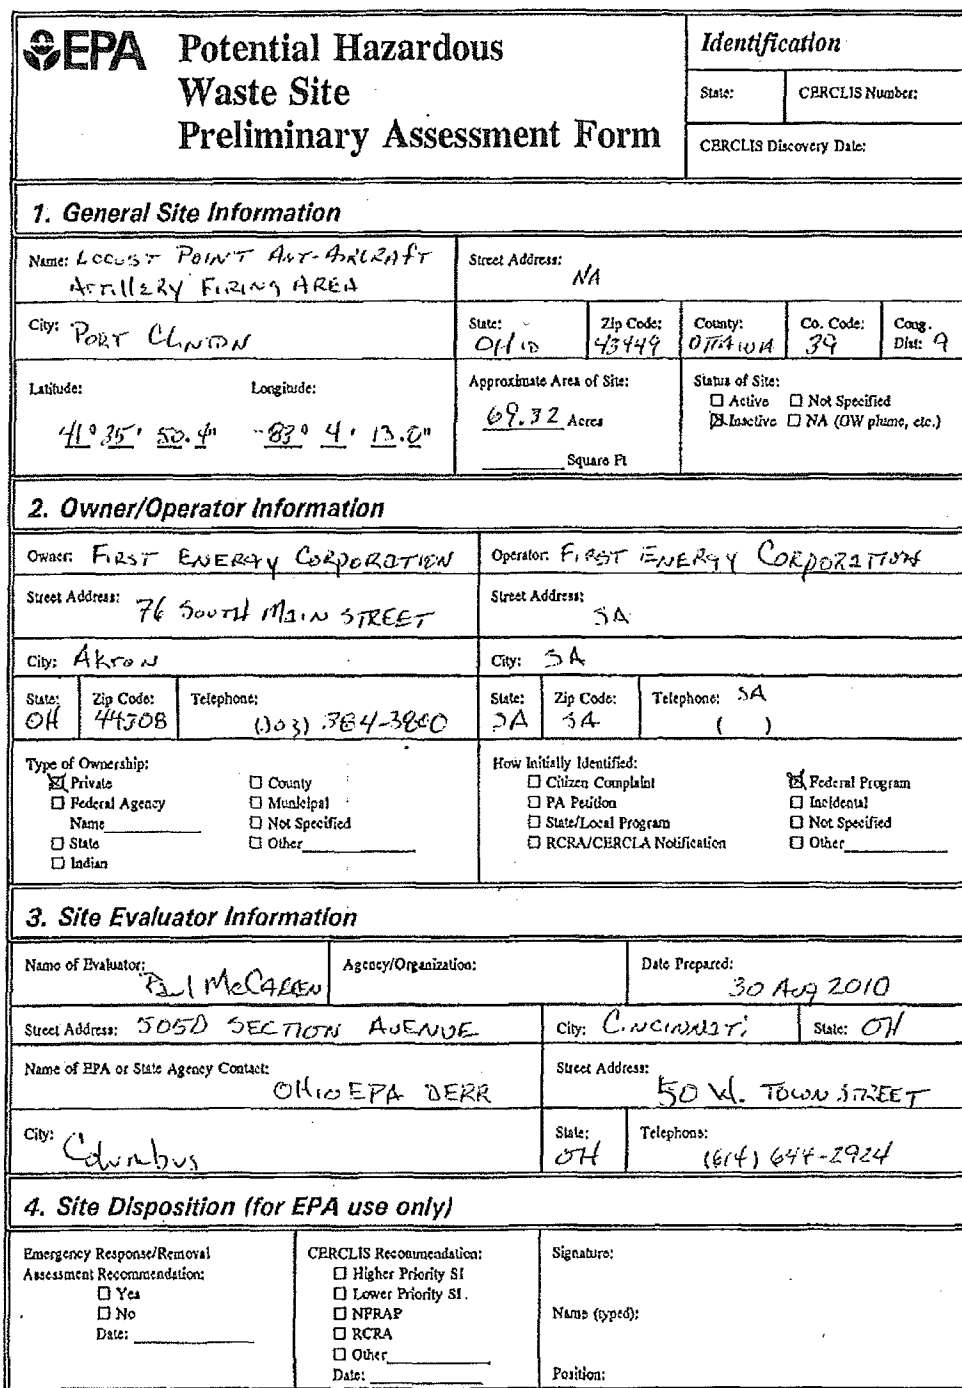 EPA Potential Hazardous
Waste Site
Preliminary Assessment Form
Identification
State: CERCLIS Number:
CERCLIS Discovery Date:
1. General Site Information
Name: LOCUST POINT ANT-AIRCRAFT
ARTILLERY FIRING AREA
Street Address:
NA
City: PORT CLINTON
State:
OHIO
Zip Code:
43449
County:
OTTAWA
Co. Code:
39
Cong.
Dist: 9
Latitude: Longitude:
41° 35' 50.4" -83° 4' 13.0"
Approximate Area of Site:
69.32 Acres
Square Ft
Status of Site:
☐ Active ☐ Not Specified
☒ Inactive ☐ NA (GW plume, etc.)
2. Owner/Operator Information
Owner: FIRST ENERGY CORPORATION
Operator: FIRST ENERGY CORPORATION
Street Address: 76 SOUTH MAIN STREET
Street Address:
SA
City: Akron
City: SA
State:
OH
Zip Code:
44308
Telephone:
State:
SA
Zip Code:
SA
Telephone: SA
( )
Type of Ownership:
☒ Private ☐ County
☐ Federal Agency ☐ Municipal
Name ☐ Not Specified
☐ State ☐ Other
☐ Indian
How Initially Identified:
☐ Citizen Complaint ☒ Federal Program
☐ PA Petition ☐ Incidental
☐ State/Local Program ☐ Not Specified
☐ RCRA/CERCLA Notification ☐ Other
3. Site Evaluator Information
Name of Evaluator:
Paul McCarren
Agency/Organization:
Date Prepared:
30 Aug 2010
Street Address: 5050 SECTION AVENUE
City: CINCINNATI
State: OH
Name of EPA or State Agency Contact:
OHIO EPA DERR
Street Address:
50 W. TOWN STREET
City: Columbus
State:
OH
Telephone:
(614) 644-2924
4. Site Disposition (for EPA use only)
Emergency Response/Removal
Assessment Recommendation:
☐ Yes
☐ No
Date:
CERCLIS Recommendation:
☐ Higher Priority SI
☐ Lower Priority SI
☐ NFRAP
☐ RCRA
☐ Other
Date:
Signature:
Name (typed):
Position: